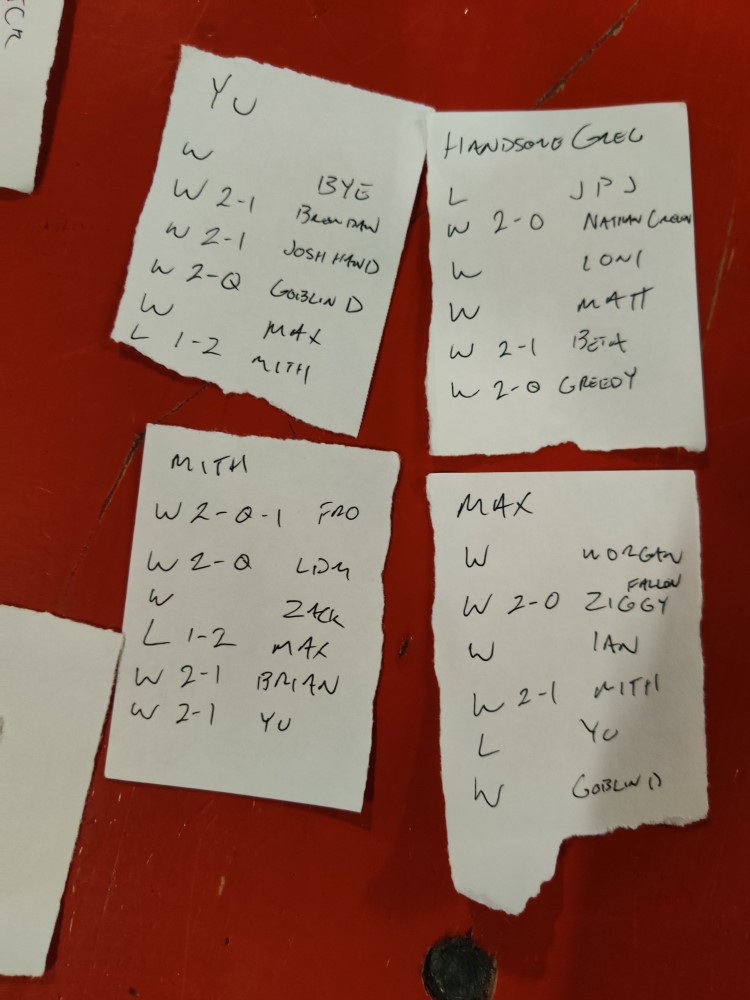 YU
W BYE
W 2-1 BRENDAN
W 2-1 JOSH HAND
W 2-0 GOBLIN D
W MAX
L 1-2 MITH
HANDSOME GREG
L JPJ
W 2-0 NATHAN
W LONI
W MATT
W 2-1 BETA
W 2-0 GREEDY
MITH
W 2-0-1 FRO
W 2-0 LDM
W ZACK
L 1-2 MAX
W 2-1 BRIAN
W 2-1 YU
MAX
W MORGAN
FALLON
W 2-0 ZIGGY
W IAN
W 2-1 MITH
L YU
W GOBLIN D